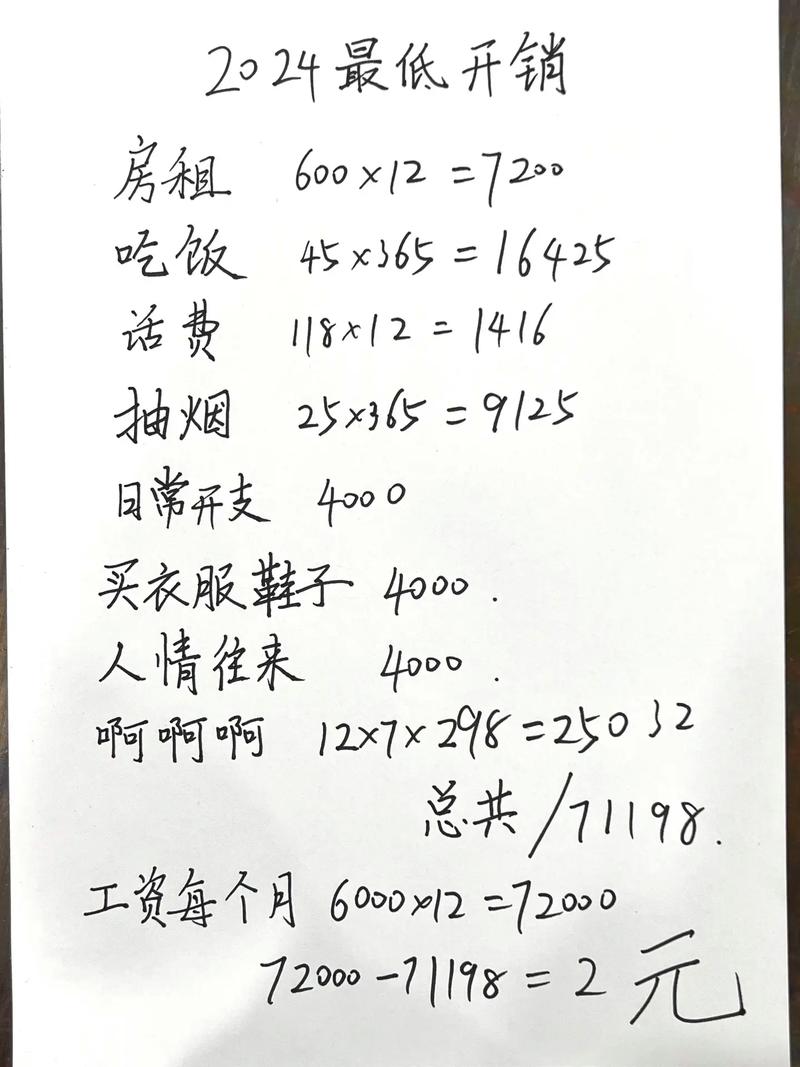 2024最低开销
房租 600×12=7200
吃饭 45×365=16425
话费 118×12=1416
抽烟 25×365=9125
日常开支 4000
买衣服鞋子 4000.
人情往来 4000.
啊啊啊 12×7×298=25032
总共/71198.
工资每个月 6000×12=72000
72000-71198=2元